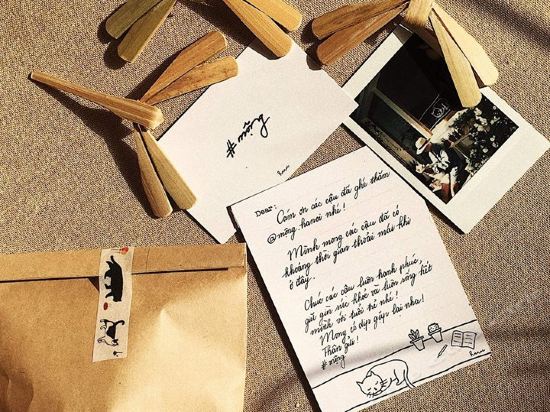 #mộng
Dear:
Cám ơn các cậu đã ghé thăm
@mộng.hanoi nhé!
Mình mong các cậu đã có
khoảng thời gian thoải mái khi
ở đây.
Chúc các cậu luôn hạnh phúc,
giữ gìn sức khỏe và luôn sống hết
mình với tuổi trẻ nhé!
Mong có dịp gặp lại nha!
Thân gửi!
#mộng